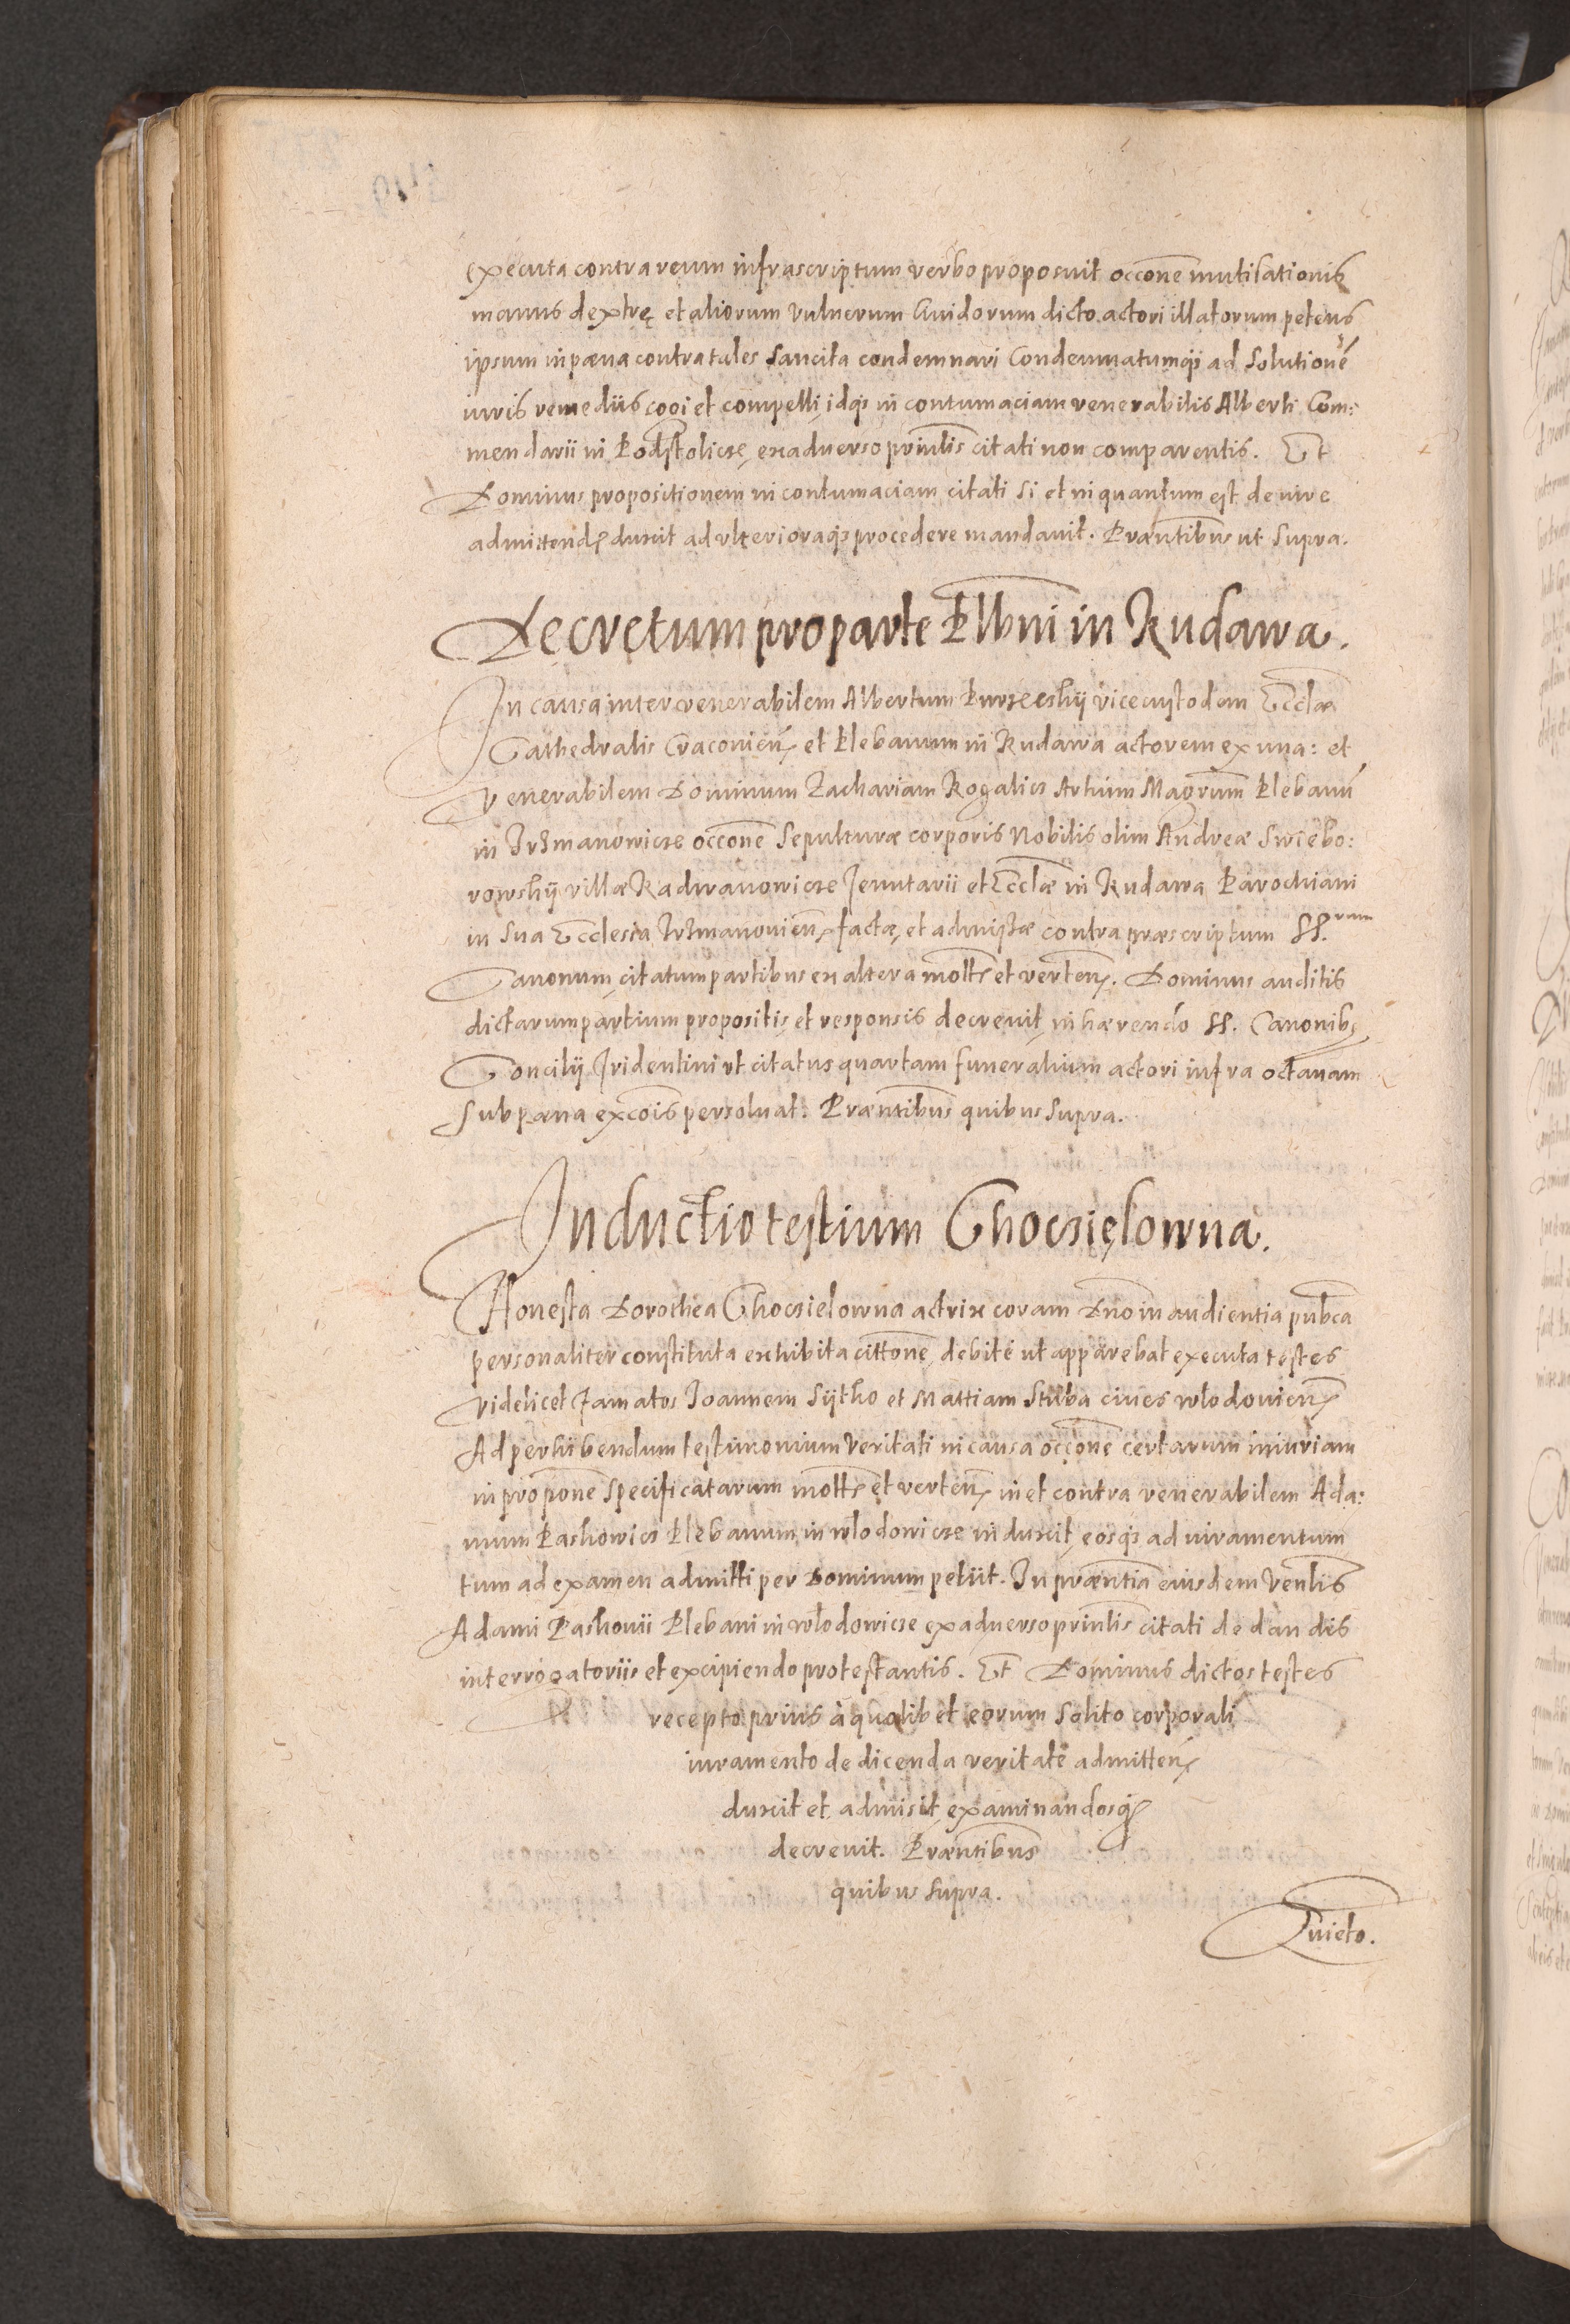 executa contra reum infrascriptum verbo proposuit occonẽ mutilationis
manus dextrę et aliorum vulnerum lividorum dicto actori illatorum petens
ipsum in pœna contra tales sancita condemnari Condemnatumq; ad solutionẽ
iuris remediis cogi et compelli, idq; in contumaciam venerabilis Alberti Com:
mendarii in Podstolicze, ex adverso prinlis citati non comparentis. Et
Dominus propositionem in contumaciam citati si et in quantum est de iure
admittend. duxit ad ulterioraq; procedere mandavit. Præntibus ut supra.
Decretum pro parte Plbni in Rudawa.
In causa inter venerabilem Albertum Purzeeskij vicecustodem Ecclæ
Cathedralis Cracovien. et Plebanum in Rudawa actorem ex una: et
Venerabilem Dominum Zachariam Rogalicz Artium Magrum Plebanũ
in Irzmanowicze occonẽ sepulturæ corporis Nobilis olim Andreæ Swiebo:
rowskij villæ Radwanowicze Tenutarii et Ecclæ in Rudawa Parochiani
in sua Ecclesia Irzmanovien. factæ, et admissæ contra præscriptum SS.rum
Canonum, citatum partibus ex altera mott. et verten. Dominus auditis
dictarum partium propositis, et responsis decrevit, inhærendo SS. Canonib;
Concilij Tridentini ut citatus quartam funeralium actori infra octavam
sub pæna excois persolvat. Præntibus quibus supra.
Inductio testium Choczięlowna.
Honesta Dorothea Choczielowna actrix coram Dno in audientia pubca
personaliter constituta exhibita cittone, debité ut apparebat executa testes
videlicet famatos Ioannem Sijtho et Mattiam Stuba cives wlodovien.
Ad perhibendum testimonium veritati in causa occone certarum iniuriam
in propone specificatarum mott. et verten. in et contra venerabilem Ada:
mum Paskowicz Plebanum in wlodowicze induxit, eosq; ad iuramentum
tum ad examen admitti per Dominum petiit. In præntia eiusdem Venlis
Adami Paskovii Plebani in wlodowicze ex adverso prinlis citati de dandis
interrogatoriis et excipiendo protestantis. Et Dominus dictos testes
recepto prius à quolibet eorum solito corporali
iuramento de dicenda veritate admitten.
duxit et admisit, examinandosq;
decrevit. Præntibus
quibus supra.
Quieto.